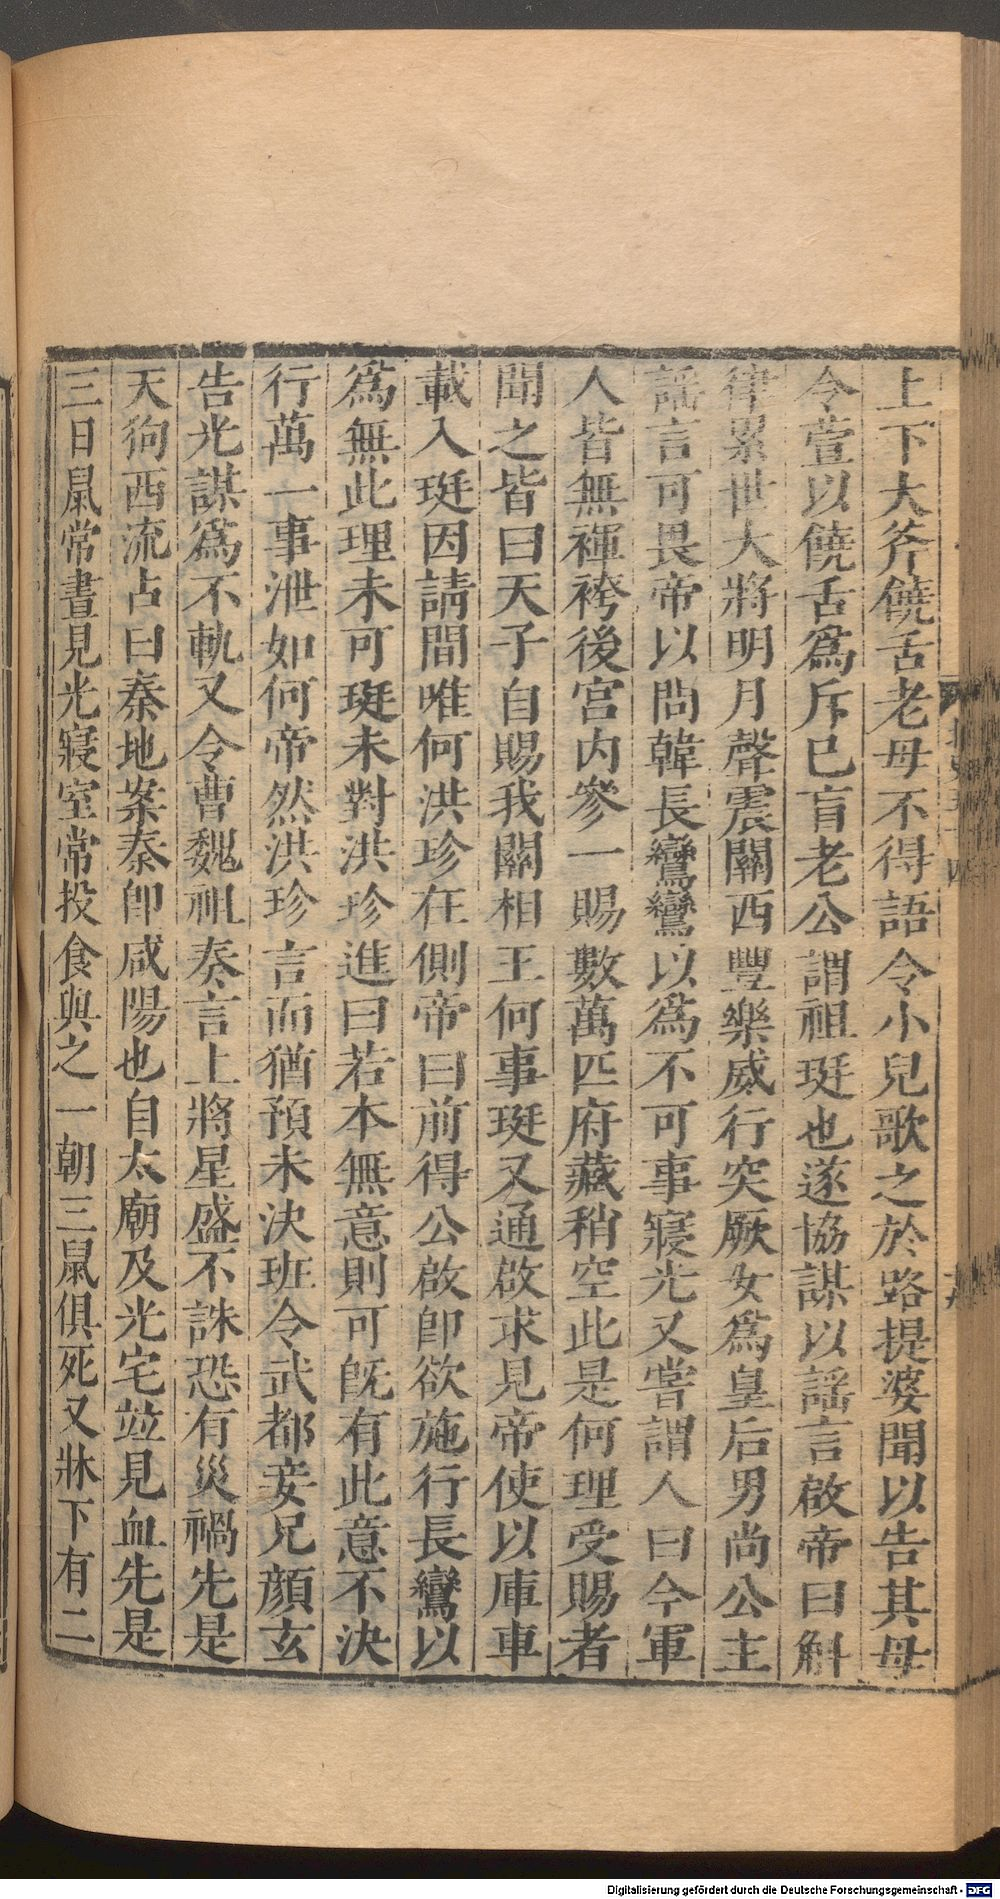 上下大斧饒舌老母不得語令小兒歌之於路提婆聞以告其母
令萱以饒舌爲斥巳盲老公謂祖珽也遂協謀以謡言啟帝曰斛
律累世大將明月聲震關西豐樂威行突厥女爲皇后男尚公主
謡言可畏帝以問韓長鸞鸞以爲不可事寢光又嘗謂人曰今軍
人皆無褌袴後宮内參一賜數萬匹府藏稍空此是何理受賜者
聞之皆曰天子自賜我關相王何事珽又通啟求見帝使以庫車
載入珽因請間唯何洪珍在側帝曰前得公啟卽欲施行長鸞以
爲無此理未可珽未對洪珍進曰若本無意則可旣有此意不決
行萬一事泄如何帝然洪珍言而猶預未決班令武都妾兄顔玄
告光謀爲不軌又令曹魏祖奏言上將星盛不誅恐有災禍先是
天狗西流占曰秦地案秦卽咸陽也自太廟及光宅竝見血先是
三日鼠常晝見光寢室常投食與之一朝三鼠俱死又牀下有二
Digitalisierung gefördert durch die Deutsche Forschungsgemeinschaft - DFG